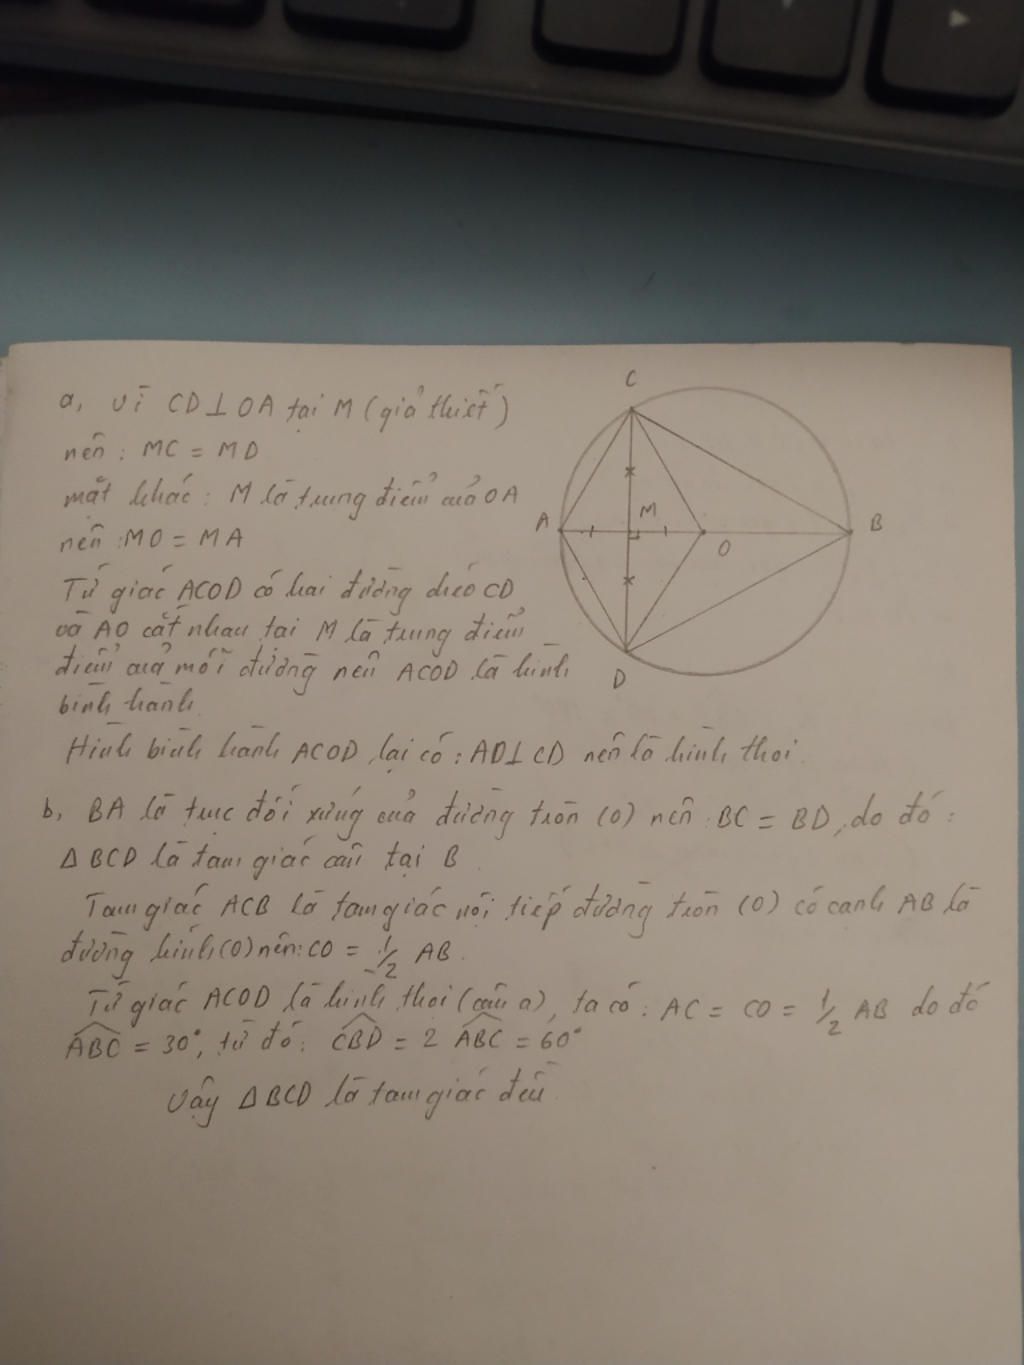 a, Vì CD⊥OA tại M (giả thiết)
nên: MC = MD
mặt khác: M là trung điểm của OA
nên: MO = MA
Tứ giác ACOD có hai đường chéo CD
và AO cắt nhau tại M là trung điểm
điểm của mỗi đường nên ACOD là hình
bình hành.
Hình bình hành ACOD lại có: AO⊥CD nên là hình thoi.
b, BA là trục đối xứng của đường tròn (O) nên: BC = BD, do đó:
Δ BCD là tam giác cân tại B.
Tam giác ACB là tam giác nội tiếp đường tròn (O) có cạnh AB là
đường kính (O) nên: CO = 1/2 AB.
Tứ giác ACOD là hình thoi (câu a), ta có: AC = CO = 1/2 AB do đó
\widehat{ABC} = 30°, từ đó: \widehat{CBD} = 2 \widehat{ABC} = 60°
Vậy ΔBCD là tam giác đều.
C
A
M
B
O
D